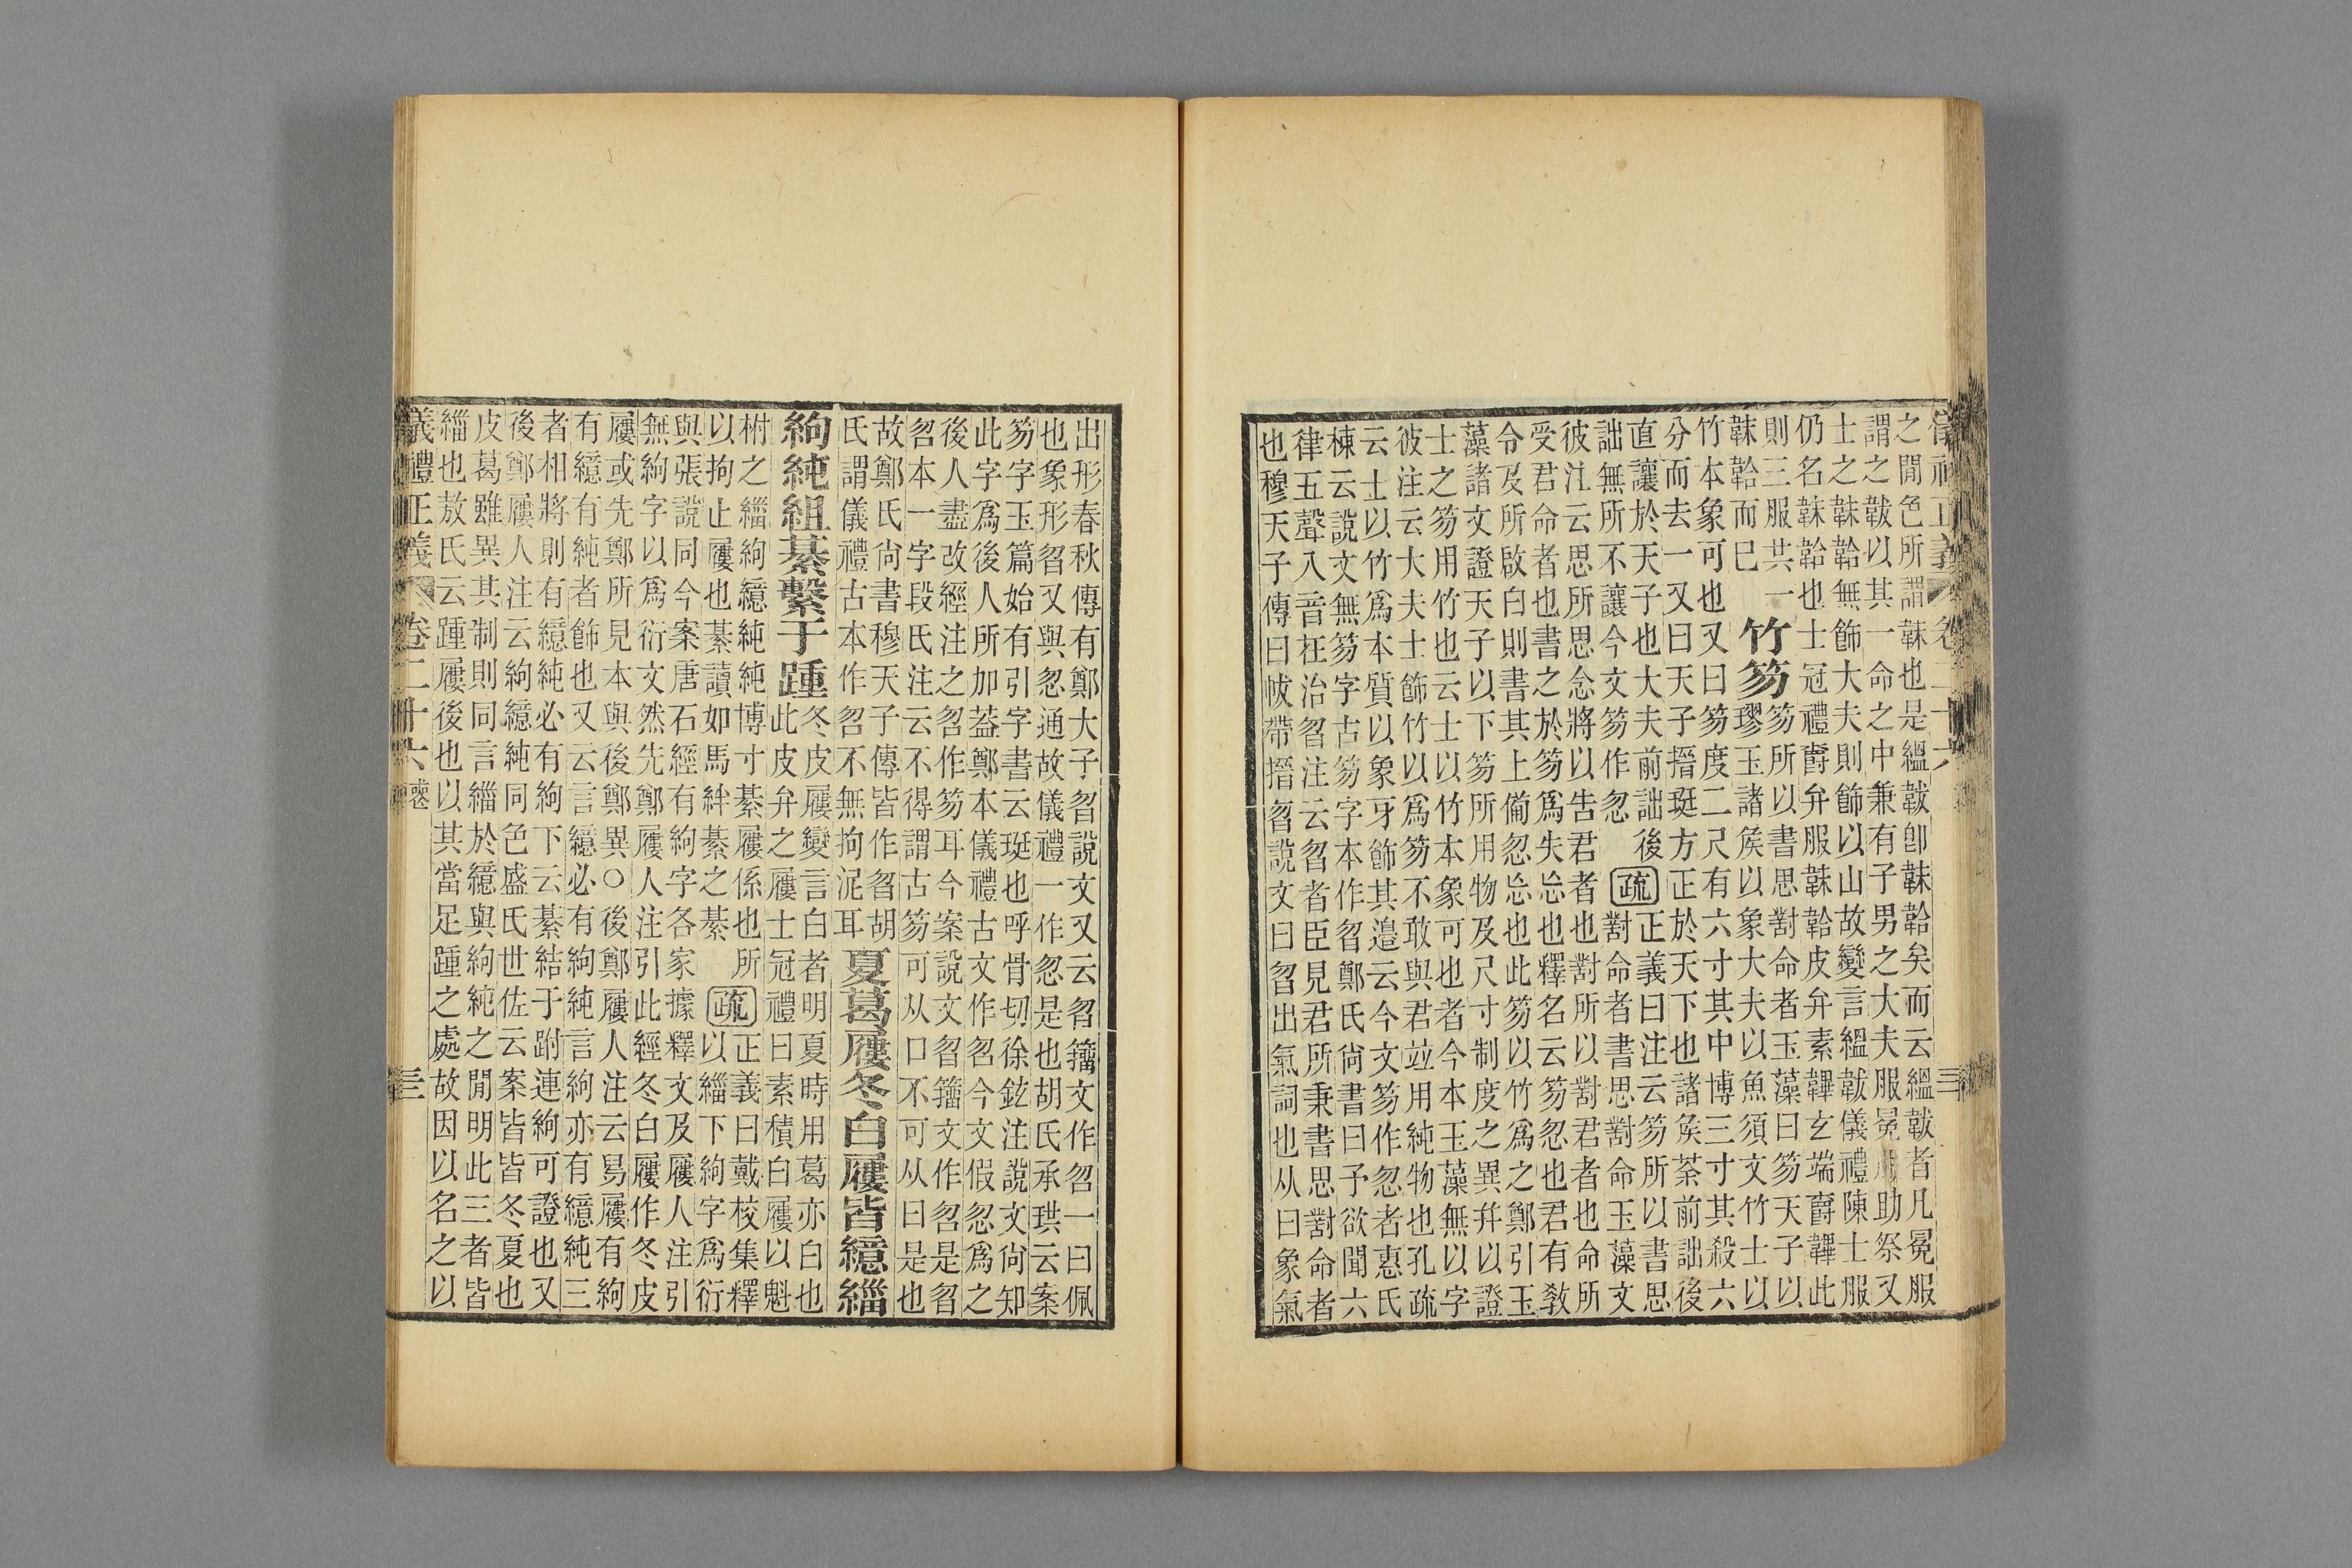 儀禮正義 卷二十六 三
之閒色所謂韎也是縕韍卽韎韐矣而云縕韍者凡冕服
謂之韍以其一命之中兼有子男之大夫服冕服助祭又
士之韎韐無飾大夫則飾以山故變言縕韍儀禮陳士服
仍名韎韐也士冠禮爵弁服韎韐皮弁素韠玄端爵韠此
則三服共一
韎韐而已
竹笏
笏所以書思對命者玉藻曰笏天子以
璆玉諸侯以象大夫以魚須文竹士以
竹本象可也又曰笏度二尺有六寸其中博三寸其殺六
分而去一又曰天子搢珽方正於天下也諸侯荼前詘後
直讓於天子也大夫前詘後
詘無所不讓今文笏作忽
疏
正義曰注云笏所以書思
對命者書思對命玉藻文
彼注云思所思念將以吿君者也對所以對君者也命所
受君命者也書之於笏爲失忘也釋名云笏忽也君有敎
令及所啟白則書其上備忽忘也此笏以竹爲之鄭引玉
藻諸文證天子以下笏所用物及尺寸制度之異幷以證
士之笏用竹也云士以竹本象可也者今本玉藻無以字
彼注云大夫士飾竹以爲笏不敢與君竝用純物也孔疏
云士以竹爲本質以象牙飾其邉云今文笏作忽者惠氏
棟云說文無笏字古笏字本作曶鄭氏尙書曰予欲聞六
律五聲八音在治曶注云曶者臣見君所秉書思對命者
也穆天子傳曰帗帶搢曶說文曰曶出氣詞也从曰象氣
出形春秋傳有鄭大子曶說文又云曶籒文作㫚一曰佩
也象形曶又與忽通故儀禮一作忽是也胡氏承珙云案
笏字玉篇始有引字書云珽也呼骨切徐鉉注說文尙知
此字爲後人所加葢鄭本儀禮古文作㫚今文假忽爲之
後人盡改經注之㫚作笏耳今案說文曶籒文作㫚是曶
㫚本一字段氏注云不得謂古笏可从口不可从曰是也
故鄭氏尙書穆天子傳皆作曶胡
氏謂儀禮古本作㫚不無拘泥耳
夏葛屨冬白屨皆繶緇
絇純組綦繫于踵
冬皮屨變言白者明夏時用葛亦白也
此皮弁之屨士冠禮曰素積白屨以魁
柎之緇絇繶純純博寸綦屨係也所
以拘止屨也綦讀如馬絆綦之綦
疏
正義曰戴校集釋
以緇下絇字爲衍
與張說同今案唐石經有絇字各家據釋文及屨人注引
無絇字以爲衍文然先鄭屨人注引此經冬白屨作冬皮
屨或先鄭所見本與後鄭異○後鄭屨人注云昜屨有絇
有繶有純者飾也又云言繶必有絇純言絇亦有繶純三
者相將則有繶純必有絇下云綦結于跗連絇可證也又
後鄭屨人注云絇繶純同色盛氏世佐云案皆皆冬夏也
皮葛雖異其制則同言緇於繶與絇純之閒明此三者皆
緇也敖氏云踵屨後也以其當足踵之處故因以名之以
儀禮正義 卷二十六 三